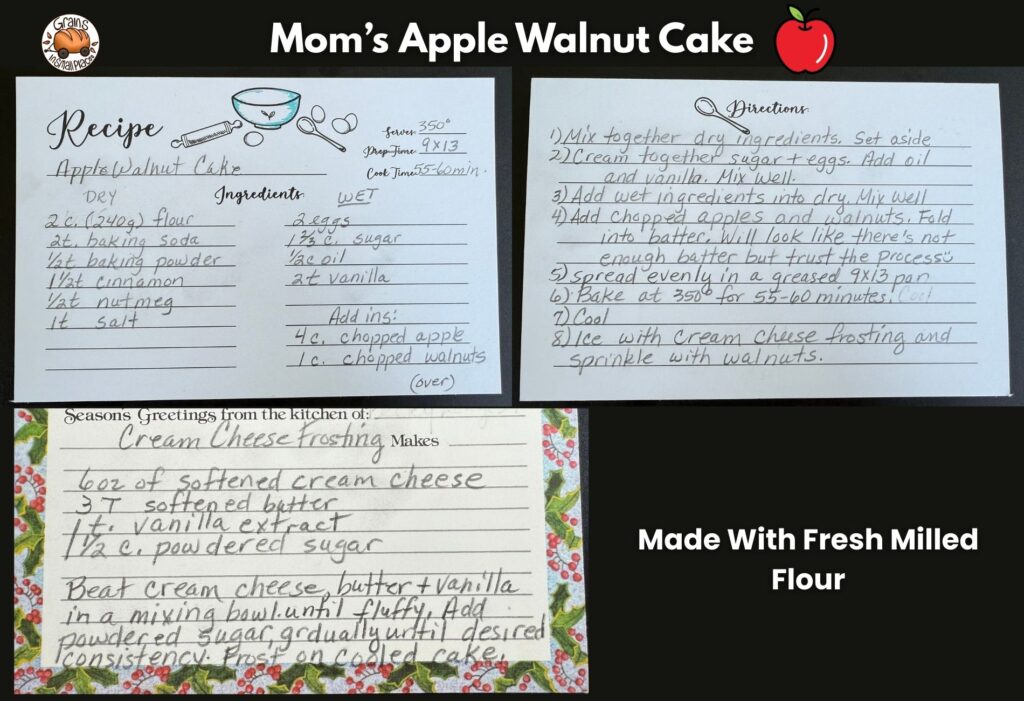 Grains
In Small Places
Mom's Apple Walnut Cake
Recipe
Serves: 350°
Prep Time: 9x13
Cook Time: 55-60 min.
Apple Walnut Cake
DRY
Ingredients
WET
2 c. (240g) flour
2t. baking soda
1/2t baking powder
1 1/2t cinnamon
1/2t nutmeg
1t salt
2 eggs
1 2/3 c. sugar
1/2c oil
2t vanilla
Add ins:
4 c. chopped apple
1 c. chopped walnuts
(over)
Directions
1) Mix together dry ingredients. Set aside
2) Cream together sugar + eggs. Add oil
and vanilla. Mix well.
3) Add wet ingredients into dry. Mix well
4) Add chopped apples and walnuts. Fold
into batter. Will look like there's not
enough batter but trust the process
5) Spread evenly in a greased 9x13 pan
6) Bake at 350° for 55-60 minutes. Cool
7) Cool
8) Ice with cream cheese frosting and
sprinkle with walnuts.
Seasons Greetings from the kitchen of:
Cream Cheese Frosting Makes
6oz of softened cream cheese
3 T softened butter
1 t. vanilla extract
1 1/2 c. powdered sugar
Beat cream cheese, butter + vanilla
in a mixing bowl until fluffy. Add
powdered sugar, grdually until desired
consistency. Frost on cooled cake.
Made With Fresh Milled
Flour